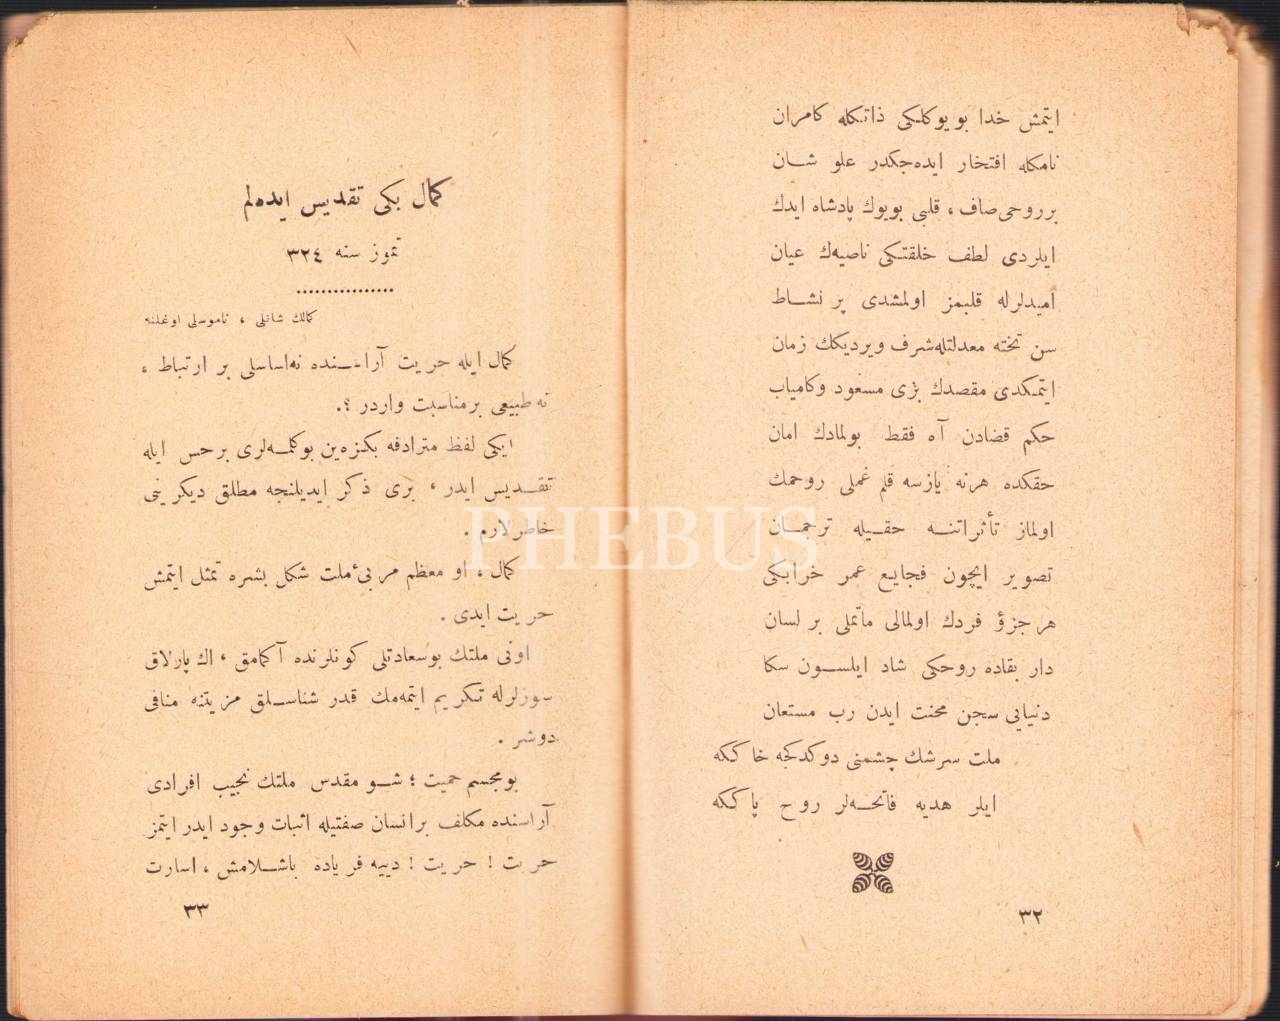 ایتمش خدا بویوكلكی ذاتكله كامران
نامكله افتخار ایده‌جكدر علو شان
برروحی‌صاف، قلبی بویوك پادشاه ایدك
ایلردی لطف خلقتكی ناصیه‌ك عیان
امیدلرله قلبمز اولمشدی پر نشاط
سن تخته معدلتله‌شرف ویردیكك زمان
ایتمكدی مقصدك بزی مسعود وكامیاب
حكم قضادن آه فقط بولمادك امان
حقكده هرنه یازسه قلم غملی روحمك
اولماز تأثراتنه حقیله ترجمان
تصویر ایچون فجایع عمر خرابكی
هر جزؤ فردك اولمالی ماتملی بر لسان
دار بقاده روحكی شاد ایلسون سكا
دنیایی سجن محنت ایدن رب مستعان
ملت سرشك چشمنی دوكدكجه خاككه
ایلر هدیه فاتحه‌لر روح پاككه
٣٢
كمال بكی تقدیس ایده‌لم
تموز سنه ٣٢٤
كمالك شانلی ، ناموسلی اوغلنه
كمال ایله حریت آراسنده نه‌اساسلی بر ارتباط ،
نه طبیعی برمناسبت واردر ؟.
ایكی لفظ مترادفه بكزه‌ین بوكلمه‌لری برحس ایله
تقدیس ایدر ، بری ذكر ایدیلنجه مطلق دیكرینی
خاطرلارم .
كمال ، او معظم مربیٔ ملت شكل بشره تمثل ایتمش
حریت ایدی .
اونی ملتك بوسعادتلی كونلرنده آكمامق ، اك پارلاق
سوزلرله تكریم ایتمه‌مك قدر شناسلق مزیتنه منافی
دوشر .
بومجسم حمیت ؛ شو مقدس ملتك نجیب افرادی
آراسنده مكلف برانسان صفتیله اثبات وجود ایدر ایتمز
حریت ! حریت ! دییه فریاده باشلامش ، اسارت
٣٣
PHEBUS